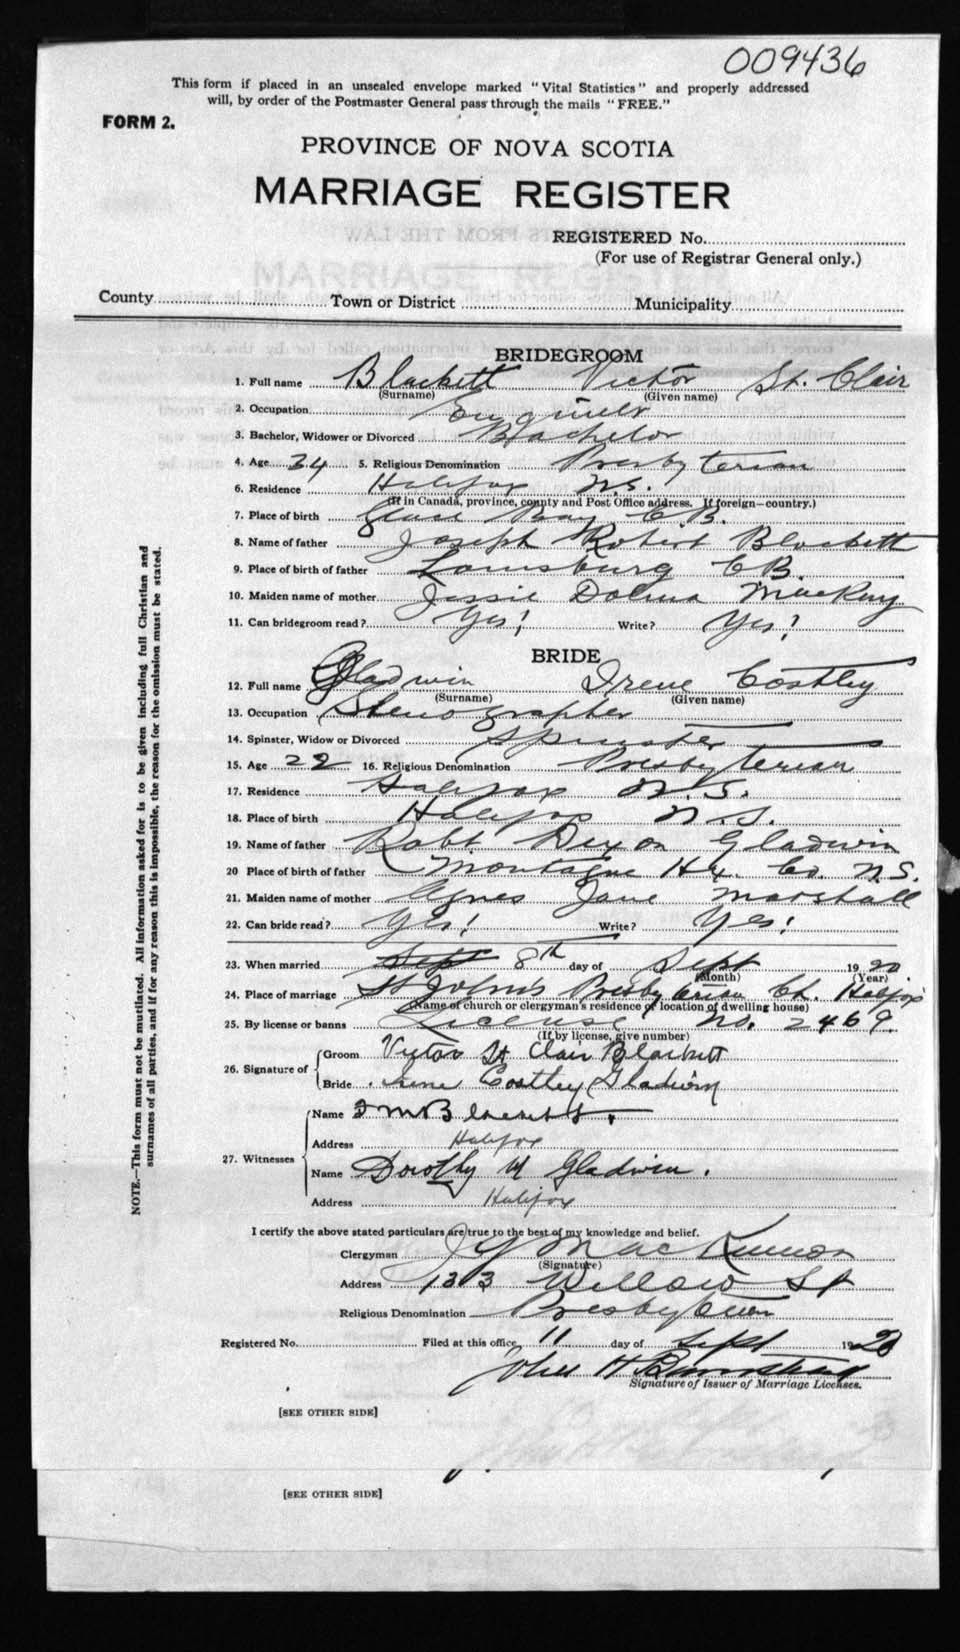 009436
This form if placed in an unsealed envelope marked "Vital Statistics" and properly addressed
will, by order of the Postmaster General pass through the mails "FREE."
FORM 2.
PROVINCE OF NOVA SCOTIA
MARRIAGE REGISTER
REGISTERED No.
(For use of Registrar General only.)
County Town or District Municipality
BRIDEGROOM
1. Full name Blackett Victor St. Clair
(Surname) (Given name)
2. Occupation Engineer
3. Bachelor, Widower or Divorced Bachelor
4. Age 34 5. Religious Denomination Presbyterian
6. Residence Halifax N.S.
(If in Canada, province, county and Post Office address. If foreign—country.)
7. Place of birth Glace Bay C.B.
8. Name of father Joseph Robert Blackett
9. Place of birth of father Louisburg CB.
10. Maiden name of mother Jessie MacKay
11. Can bridegroom read? Yes! Write? Yes!
BRIDE
12. Full name Gladwin Irene Costley
(Surname) (Given name)
13. Occupation Stenographer
14. Spinster, Widow or Divorced Spinster
15. Age 22 16. Religious Denomination Presbyterian
17. Residence Halifax N.S.
18. Place of birth Halifax N.S.
19. Name of father Robt Dixon Gladwin
20 Place of birth of father Montague Hx. Co. N.S.
21. Maiden name of mother Agnes Jane Marshall
22. Can bride read? Yes! Write? Yes!
23. When married Sept 8th day of Sept 1920
(Month) (Year)
24. Place of marriage St John's Presbyterian Ch. Halifax
(Name of church or clergyman's residence or location of dwelling house)
25. By license or banns License No. 2469.
(If by license, give number)
26. Signature of
Groom Victor St Clair Blackett
Bride Irene Costley Gladwin
27. Witnesses
Name Blackett.
Address Halifax
Name Dorothy M Gladwin.
Address Halifax
I certify the above stated particulars are true to the best of my knowledge and belief.
Clergyman MacKinnon
(Signature)
Address 133 Willow St
Religious Denomination Presbyterian
Registered No. Filed at this office 11 day of Sept 1920
John H Barnstead
Signature of Issuer of Marriage Licenses.
[SEE OTHER SIDE]
[SEE OTHER SIDE]
NOTE.—This form must not be mutilated. All information asked for is to be given including full Christian and
surnames of all parties, and if for any reason this is impossible, the reason for the omission must be stated.